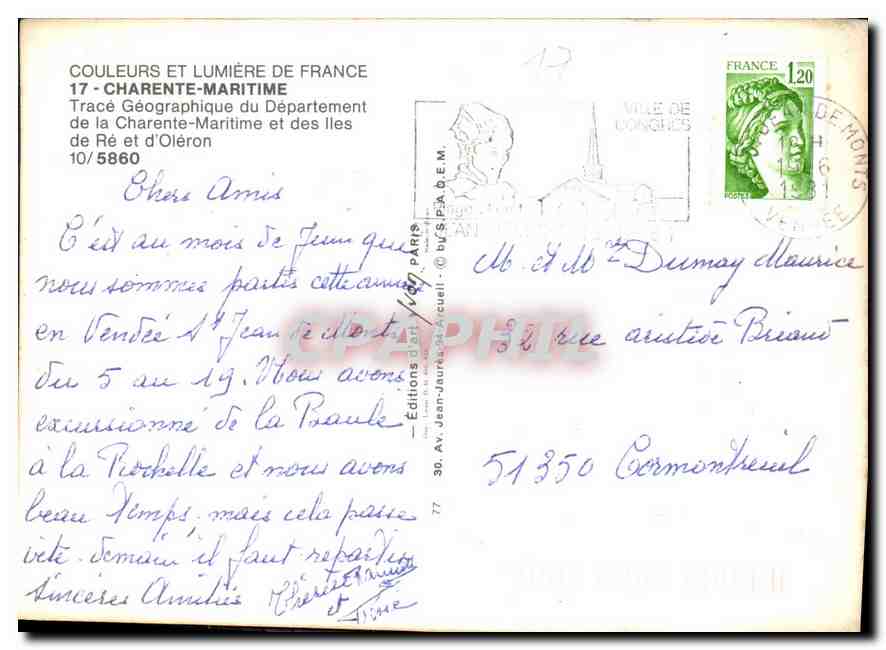 COULEURS ET LUMIÈRE DE FRANCE
17 - CHARENTE-MARITIME
Tracé Géographique du Département
de la Charente-Maritime et des Iles
de Ré et d'Oléron
10/5860
17
VILLE DE
CONGRES
FRANCE 1,20
POSTES
DE MONTS
1981
VENDEE
Chers Amis
C'est au mois de Juin que
nous sommes partis cette année
en Vendée St Jean de Monts
du 5 au 19. Nous avons
excursionné de la Baule
à la Rochelle et nous avons
beau temps, mais cela passe
vite. demain il faut repartir
sincères Amitiés
Thérèse
et
— Éditions d'art Yvon, PARIS
30. Av. Jean-Jaurès-94-Arcueil - © by S.P.A.D.E.M.
77
M. et Me Dumay Maurice
32 rue aristide Briand
51350 Cormontreuil
CPAPHIL